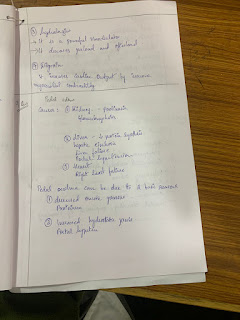 ③ Hydralazine
→ It is a powerful vasodilator
→ It decreases preload and afterload
④ Digoxin
↳ Increases cardiac output by increase
myocardial contractility.
Pedal edema
Causes: ① Kidney - proteinuria
Glomerulonephritis
② Liver - ↓ protein synthesis
hepatic cirrhosis
liver failure
Portal hypertension
③ Heart
Right heart failure
Pedal oedema can be due to 2 main reasons
① decreased oncotic pressure
Proteinuria
② Increased hydrostatic pressure
Portal hypertn